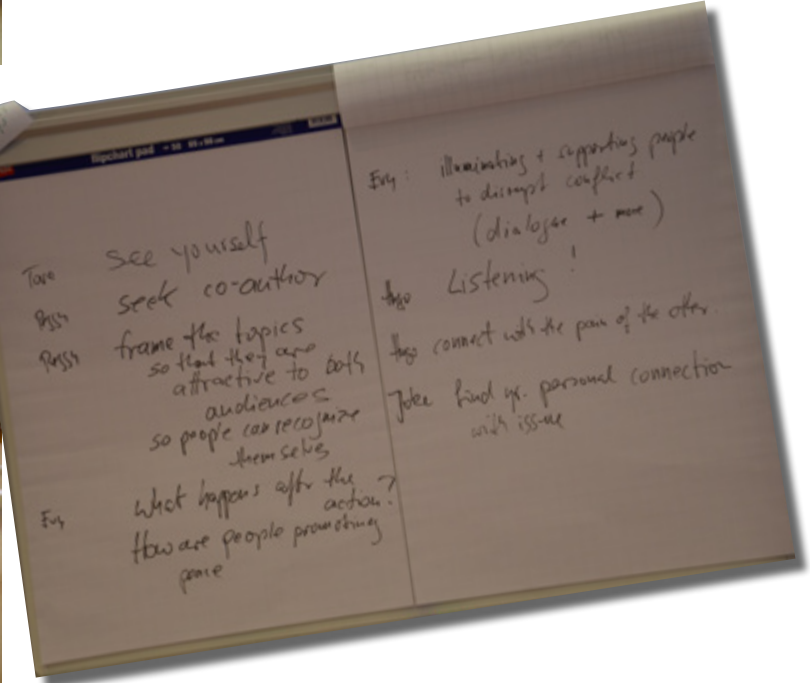 flipchart pad
See yourself
seek co-author
Peggy frame the topics
so that they are
attractive to both
audiences
so people can recognize
themselves
Evy what happens after the
action?
How are people promoting
peace
Evy: illuminating + supporting people
to disrupt conflict
(dialogue + more)
Hugo Listening!
Hugo connect with the pain of the other.
find yr. personal connection
with issue